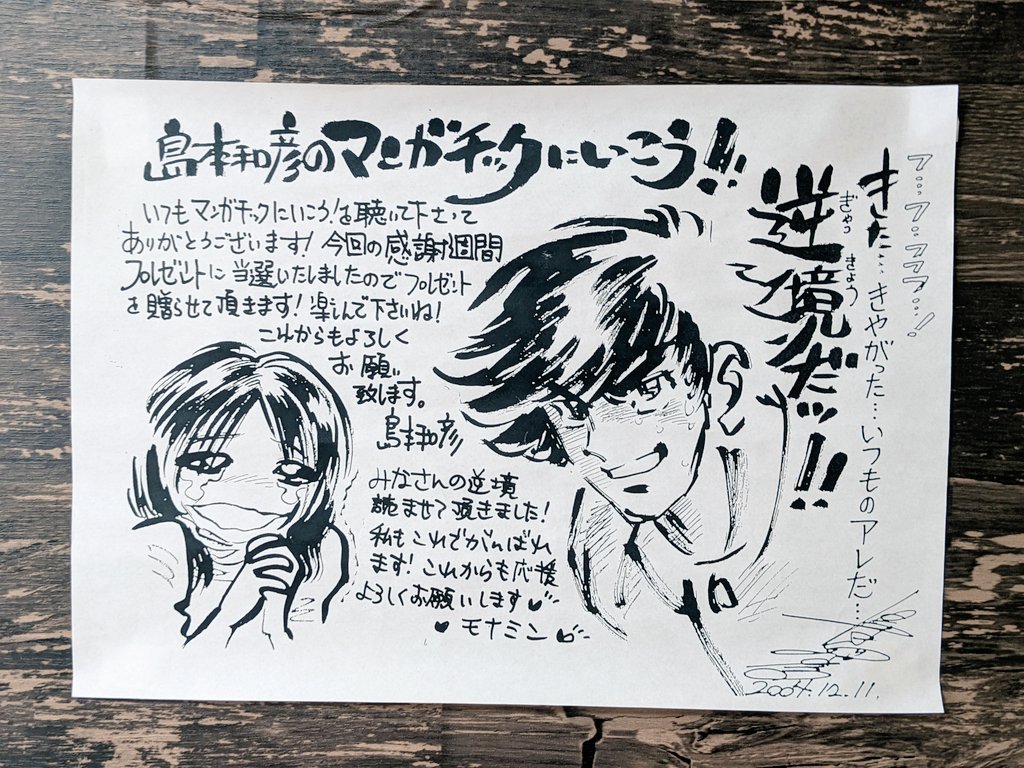 島本和彦のマンガチックにいこう!!
いつもマンガチックにいこう!を聴いて下さって
ありがとうございます!今回の感謝週間
プレゼントに当選いたしましたのでプレゼント
を贈らせて頂きます!楽しんで下さいね!
これからもよろしく
お願い
致します。
島本和彦
みなさんの逆境
読ませて頂きました!
私もこれでがんばれ
ます!これからも応援
よろしくお願いします♥
♥モナミン
フ……フ…フフフ…!
きた…きやがった…いつものアレだ…
逆境だッ!!
ぎゃっ
きょう
2004.12.11.